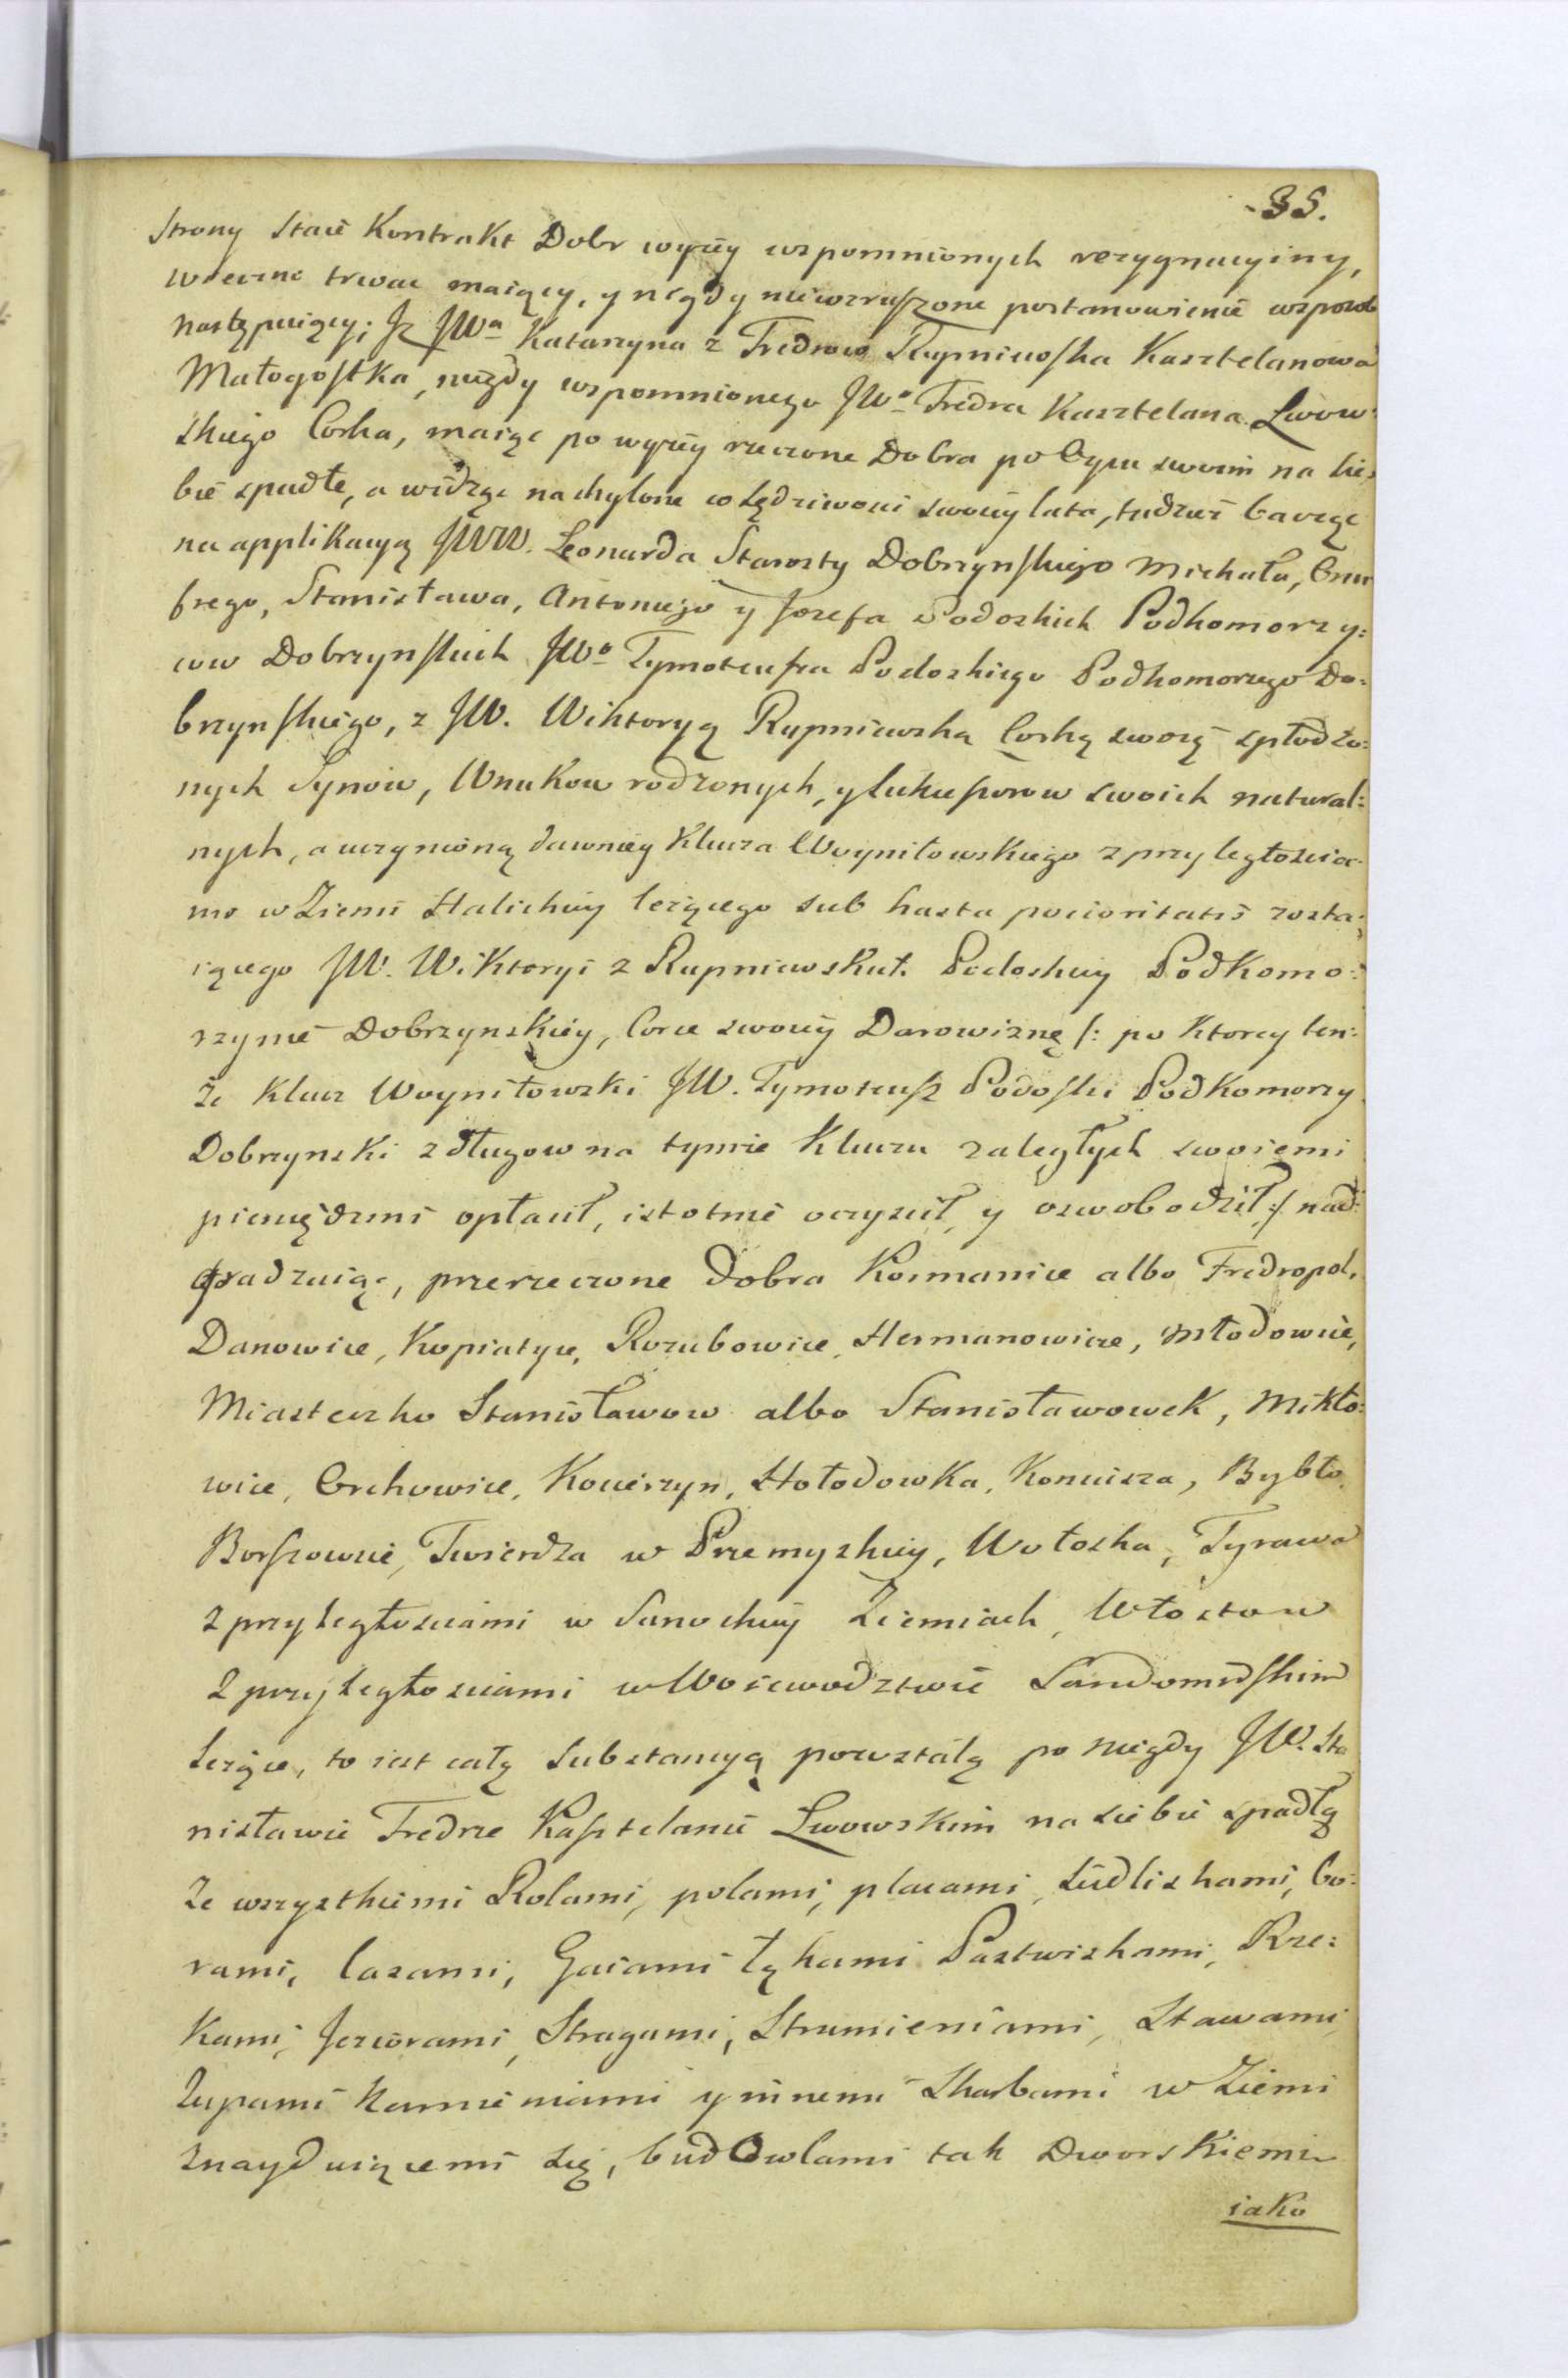 35.
Strony Staie Kontrakt Dobr wyżey wspomnionych rezygnacyiny,
wiecznie trwac maiący, y nigdy niewzruszone postanowienie wsposob
następuiący; Jż JWa Katarzyna z Fredrow Rupniewska Kasztelanowa
Małogostka, niegdy wspomnionego JWo Fredra Kasztelana Lwow:
skiego Corka, maiąc po wyżey rzeczone Dobra po Oycu swoim na sie,
bie spadłe, a widząc nachylone w sędziwości swoiey lata, tudzież bacząc
na applikacyą JWW. Leonarda Starosty Dobrzynskiego Michała, Onu
frego, Stanisława, Antoniego y Jozefa Podoskich Podkomorzy:
cow Dobrzynskich JWo Tymoteusza Podoskiego Podkomorzego Do:
brzynskiego, z JW. Wiktoryą Rupniewską Corką swoią spłodzo:
nych Synow, Wnukow rodzonych, y sukcessorow swoich natural:
nych, a uczynioną dawniey Klucza Woyniłowskiego z przyległościa-
mi w Ziemi Halickiey leżącego sub hasta pocioritatis zosta:
iącego JW. Wiktoryi z Rupniewskich Podoskiey Podkomo:
rzynie Dobrzynskiey, Corce swoiey Darowiznę /: po ktorey ten:
że Klucz Woyniłowski JW. Tymoteusz Podoski Podkomorzy
Dobrzynski z długow na tymże Kluczu zaległych swoiemi
pieniędzmi opłacił, istotnie oczyscił, y oswobodził :/ nad:
gradzaiąc, przerzeczone Dobra Kormanice albo Fredropol,
Danowice, Kopiatyce, Rozubowice, Hermanowice, Młodowice,
Miasteczko Stanisławow albo Stanisławowek, Mikło:
wice, Orchowice, Kocierzyn, Hołodowka, Koniusza, Bybło
Borszowice, Twierdza w Przemyskiey, Wołoska, Tyrawa
z przyległościami w Sanockiey Ziemiach, Włostow
z przyległościami w Woiewodztwie Sandomirskim
leżące, to iest całą Substancyą powstałą po niegdy JW. Sta
nisławie Fredrze Kasztelanie Lwowskim na siebie spadłą
ze wszystkiemi Rolami, polami, placami, siedliskami, bo:
rami, lasami, Gaiami łąkami Pastwiskami, Rze:
kami, Jeziorami, Strugami, Strumieniami, Stawami,
żupami kamieniami y innemi Skarbami w Ziemi
znayduiącemi się, budowlami tak Dworskiemi
iako